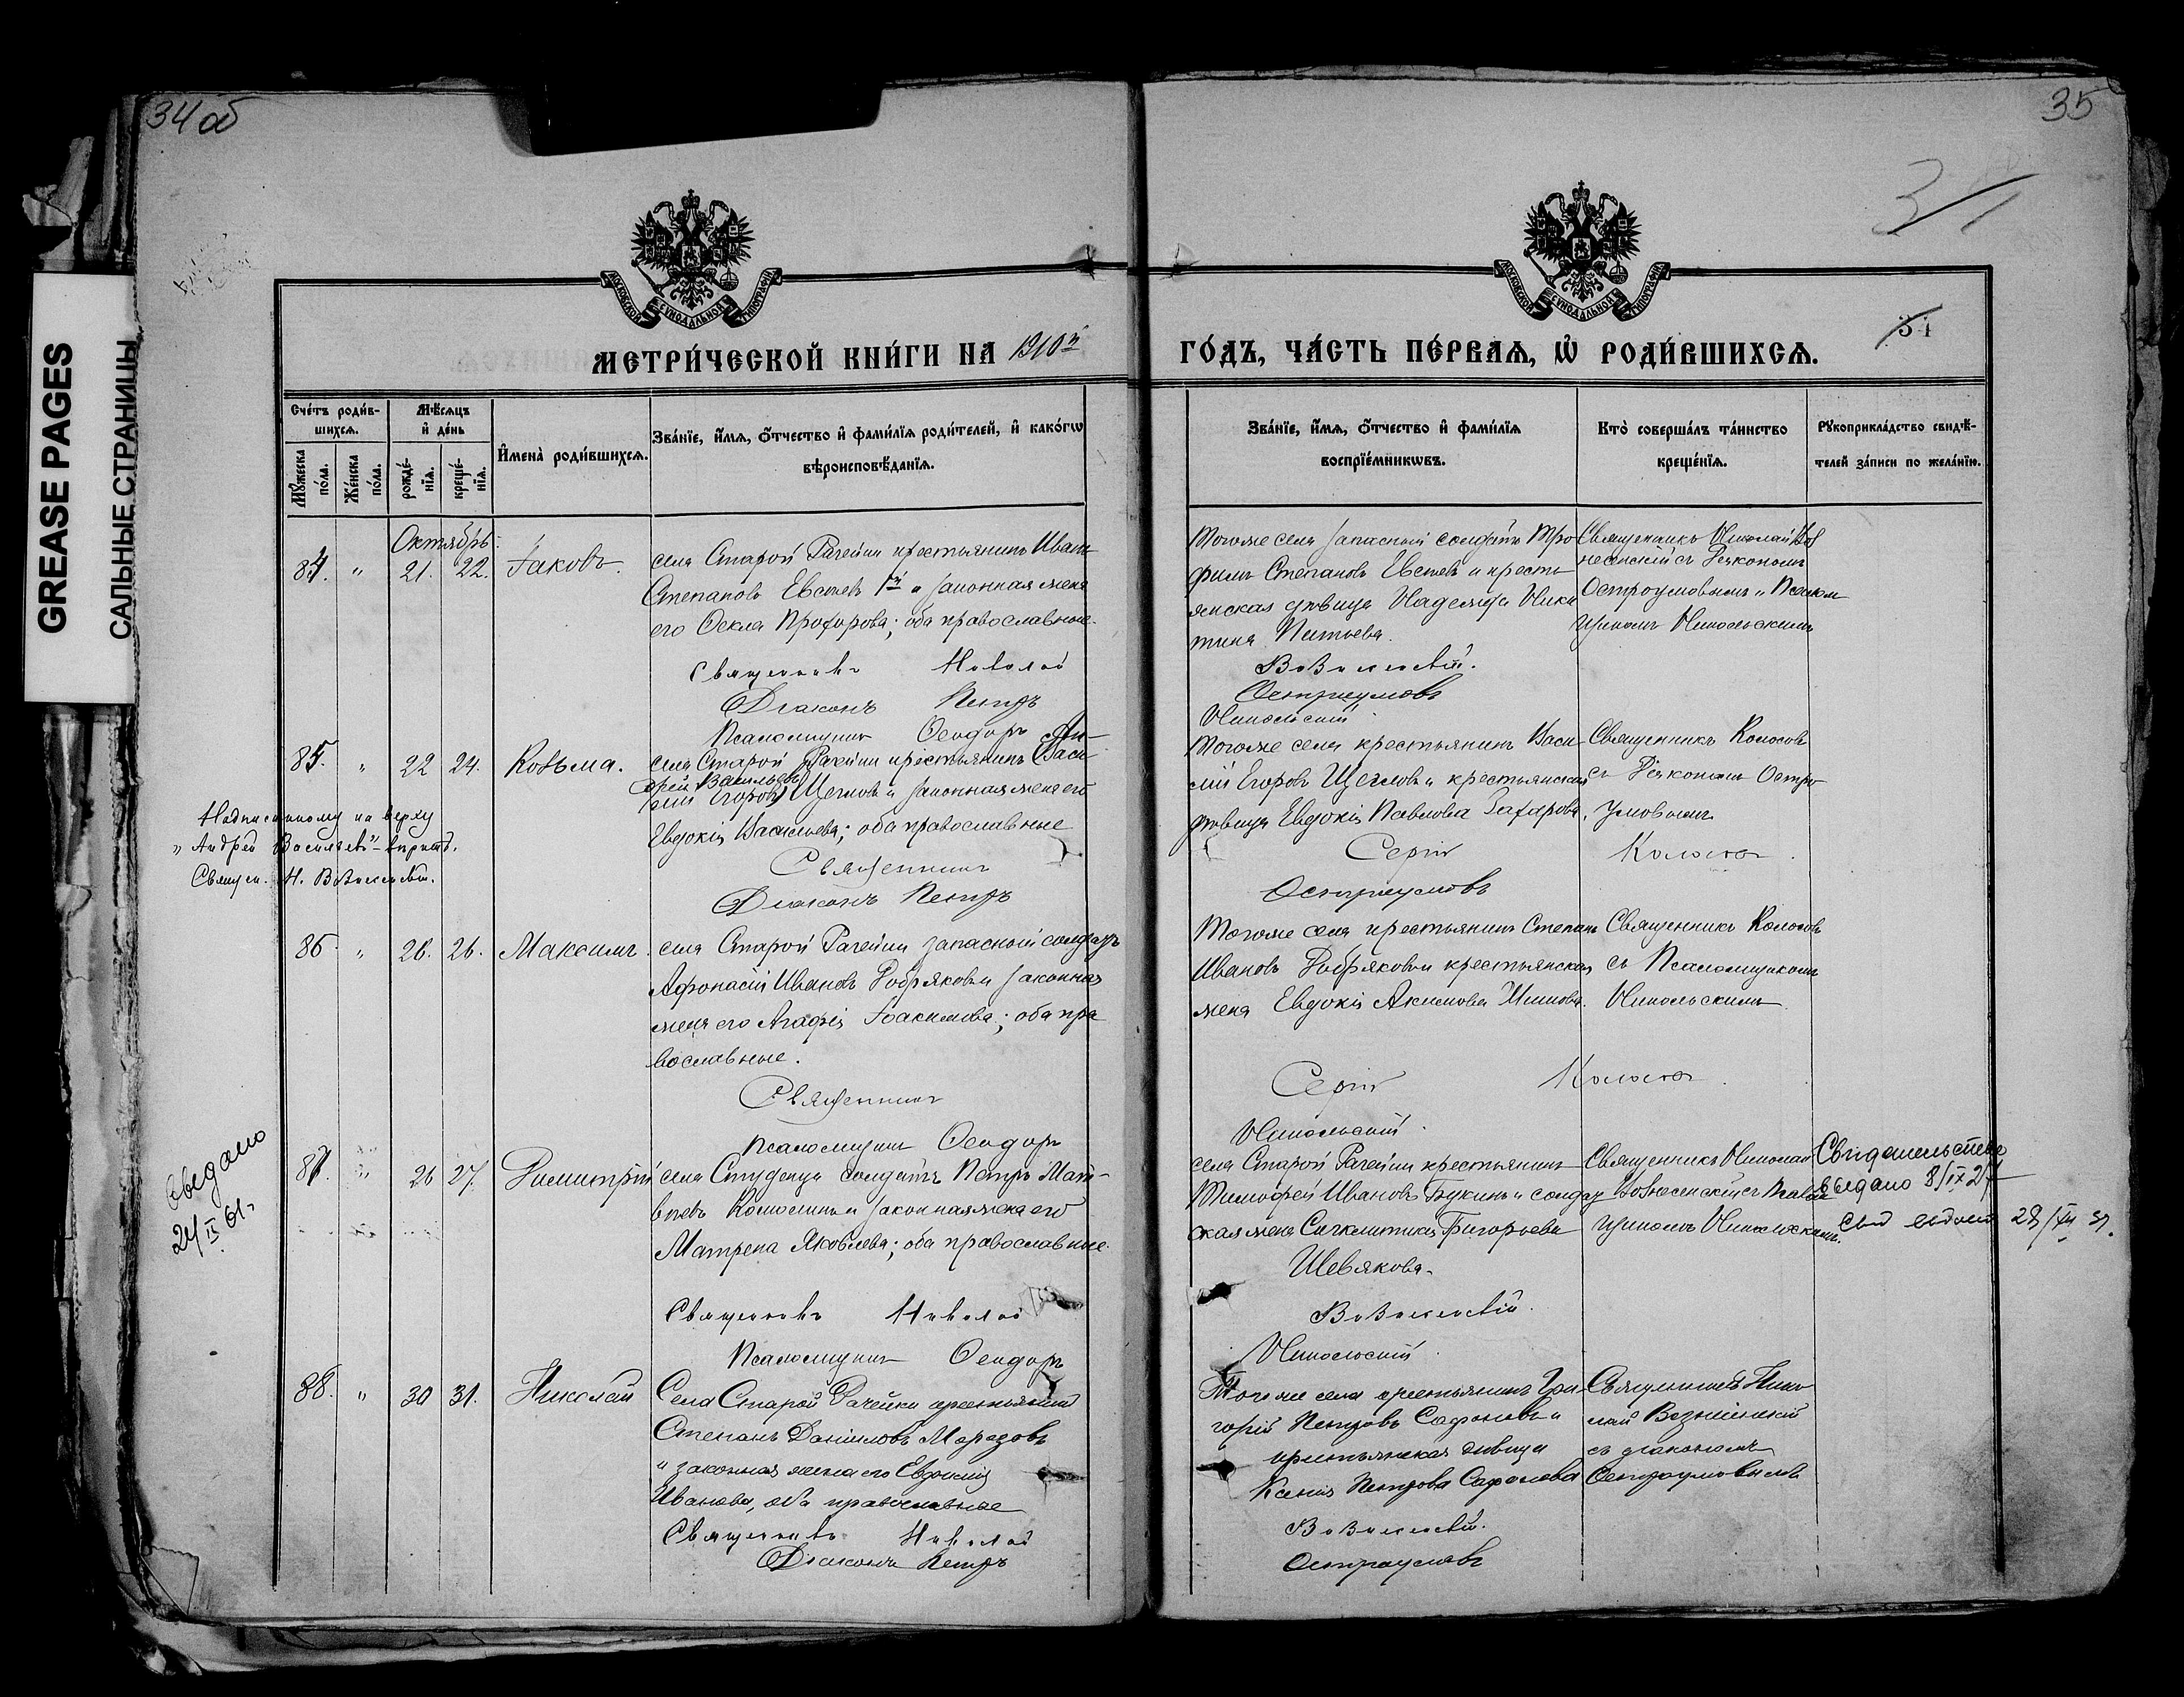 34 об
35
GREASE PAGES
САЛЬНЫЕ СТРАНИЦЫ
МОСКОВСКОЙ СѴНОДАЛЬНОЙ ТИПОГРАФІИ
МОСКОВСКОЙ СѴНОДАЛЬНОЙ ТИПОГРАФІИ
34
МЕТРИ́ЧЕСКОЙ КНИ́ГИ НА 1910й
ГО́ДЪ, ЧА́СТЬ ПЕ́РВАѦ, Ѡ҆ РОДИ́ВШИХСѦ.
Сче́тъ роди́вшихсѧ.
Мꙋ́жеска по́ла.
Же́нска по́ла.
Мѣ́сѧцъ и҆ де́нь
рожде́нїѧ.
креще́нїѧ.
И҆мена̀ роди́вшихсѧ.
Зва́нїе, и҆́мѧ, ѻ҆́тчество и҆ фами́лїѧ роди́телей, и҆ како́гѡ
вѣроисповѣ́данїѧ.
Зва́нїе, и҆́мѧ, ѻ҆́тчество и҆ фами́лїѧ
воспрїе́мникѡвъ.
Кто̀ соверша́лъ та́инство
креще́нїѧ.
Рꙋкоприкла́дство свидѣ́-
телей за́писи по жела́нїю.
Октябрь.
84. " 21. 22. Іаковъ.
села Старой Рачейки крестьянинъ Иванъ
Степановъ Евстевъ 1й и законная жена
его Ѳекла Прохорова; оба православные.
Священникъ Николай
Діаконъ Петръ
Псаломщикъ Ѳеодоръ
Тогоже села запасный солдатъ Тро
фимъ Степановъ Евстевъ и кресть
янская дѣвица Надежда Ники
тина Питьева.
Вознесенскій.
Остроумовъ
Никольскій
Священникъ Николай Воз
несенскій съ Діакономъ
Остроумовымъ и Псалом
щикомъ Никольскимъ
85. " 22 24. Козьма.
Ан-
села Старой Рачейки крестьянинъ (Васи-
дрей Васильевъ
лій Егоровъ) Щегловъ и законная жена его
Евдокія Васильева; оба православные
Священникъ
Діаконъ Петръ
Надписанному на верху
"Андрей Васильевъ" – вѣрить.
Священ. Н. Вознесенскій.
Тогоже села крестьянинъ Васи
лій Егоровъ Щегловъ и крестьянская
дѣвица Евдокія Павлова Захарова.
Сергій Колосовъ
Остроумовъ
Священникъ Колосовъ
съ Діакономъ Остро-
умовымъ
86. " 26. 26. Максимъ.
села Старой Рачейки запасный солдатъ
Афонасій Ивановъ Добряковъ и законная
жена его Агафія Іоакимова; оба пра
вославные.
Священникъ
Псаломщикъ Ѳеодоръ
Тогоже села крестьянинъ Степанъ
Ивановъ Добряковъ и крестьянская
жена Евдокія Акимова
Сергій Колосовъ
Никольскій.
Священникъ Колосовъ
съ Псаломщикомъ
Никольскимъ
Выдано
24/IX 61.
87. " 26 27. Димитрій
села Студенца солдатъ Петръ Мат-
вѣевъ и законная жена его
Матрена Яковлева; оба православные.
Священникъ Николай
Псаломщикъ Ѳеодоръ
села Старой Рачейки крестьянинъ
Тимофей Ивановъ Букинъ и солдат
ская жена Сигклитикія Григорьева
Шевякова.
Вознесенскій.
Никольскій.
Священникъ Николай
Вознесенскій съ Псалом
щикомъ Никольскимъ.
Свидетельство
выдано 8/IX 27
28/XII 37.
88. " 30 31. Николай
Села Старой Рачейки крестьянинъ
Степанъ Даниловъ Морозовъ
и законная жена его Евфимія
Иванова, оба православные
Священникъ Николай
Діаконъ Петръ
Того же села крестьянинъ Гри-
горій Петровъ Сафоновъ и
крестьянская дѣвица
Ксенія Петрова Сафонова
Вознесенскій.
Остроумовъ
Священникъ Нико
лай Вознесенскій
съ діакономъ
Остроумовымъ